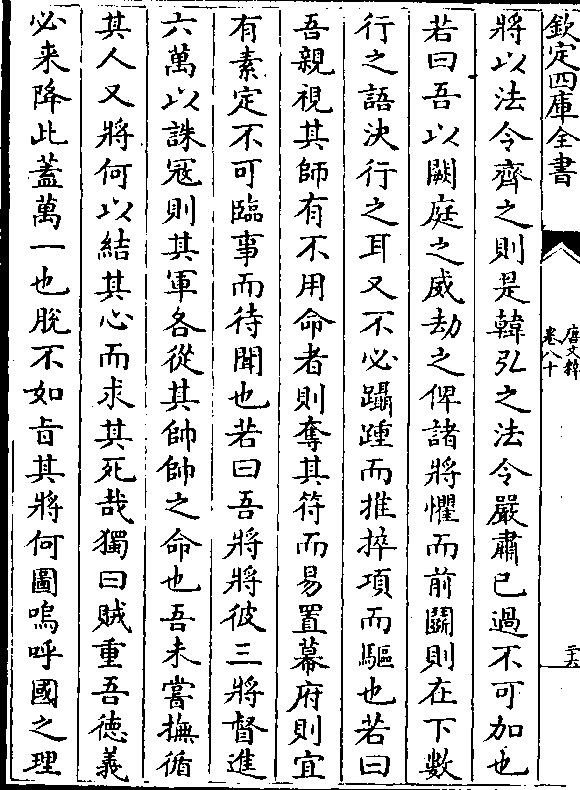 欽定四庫全書
唐文粹
卷八十
二十六
將以法令齊之則是韓弘之法令嚴肅已過不可加也
若曰吾以闕庭之威劫之俾諸將懼而前鬬則在下數
行之語決行之耳又不必躡踵而推捽項而驅也若曰
吾親視其師有不用命者則奪其符而易置幕府則宜
有素定不可臨事而待聞也若曰吾將將彼三將督進
六萬以誅冦則其軍各從其帥帥之命也吾未嘗撫循
其人又將何以結其心而求其死哉獨曰賊重吾德義
必来降此蓋萬一也脫不如㫖其將何圖嗚呼國之理